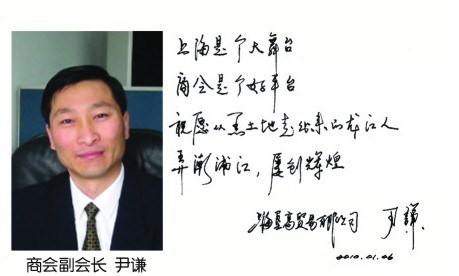 上海是个大舞台
商会是个好平台
祝愿从黑土地走出来的龙江人
弄潮浦江，屡创辉煌
上海 高贸易有限公司 尹谦
2010.01.06
商会副会长 尹谦